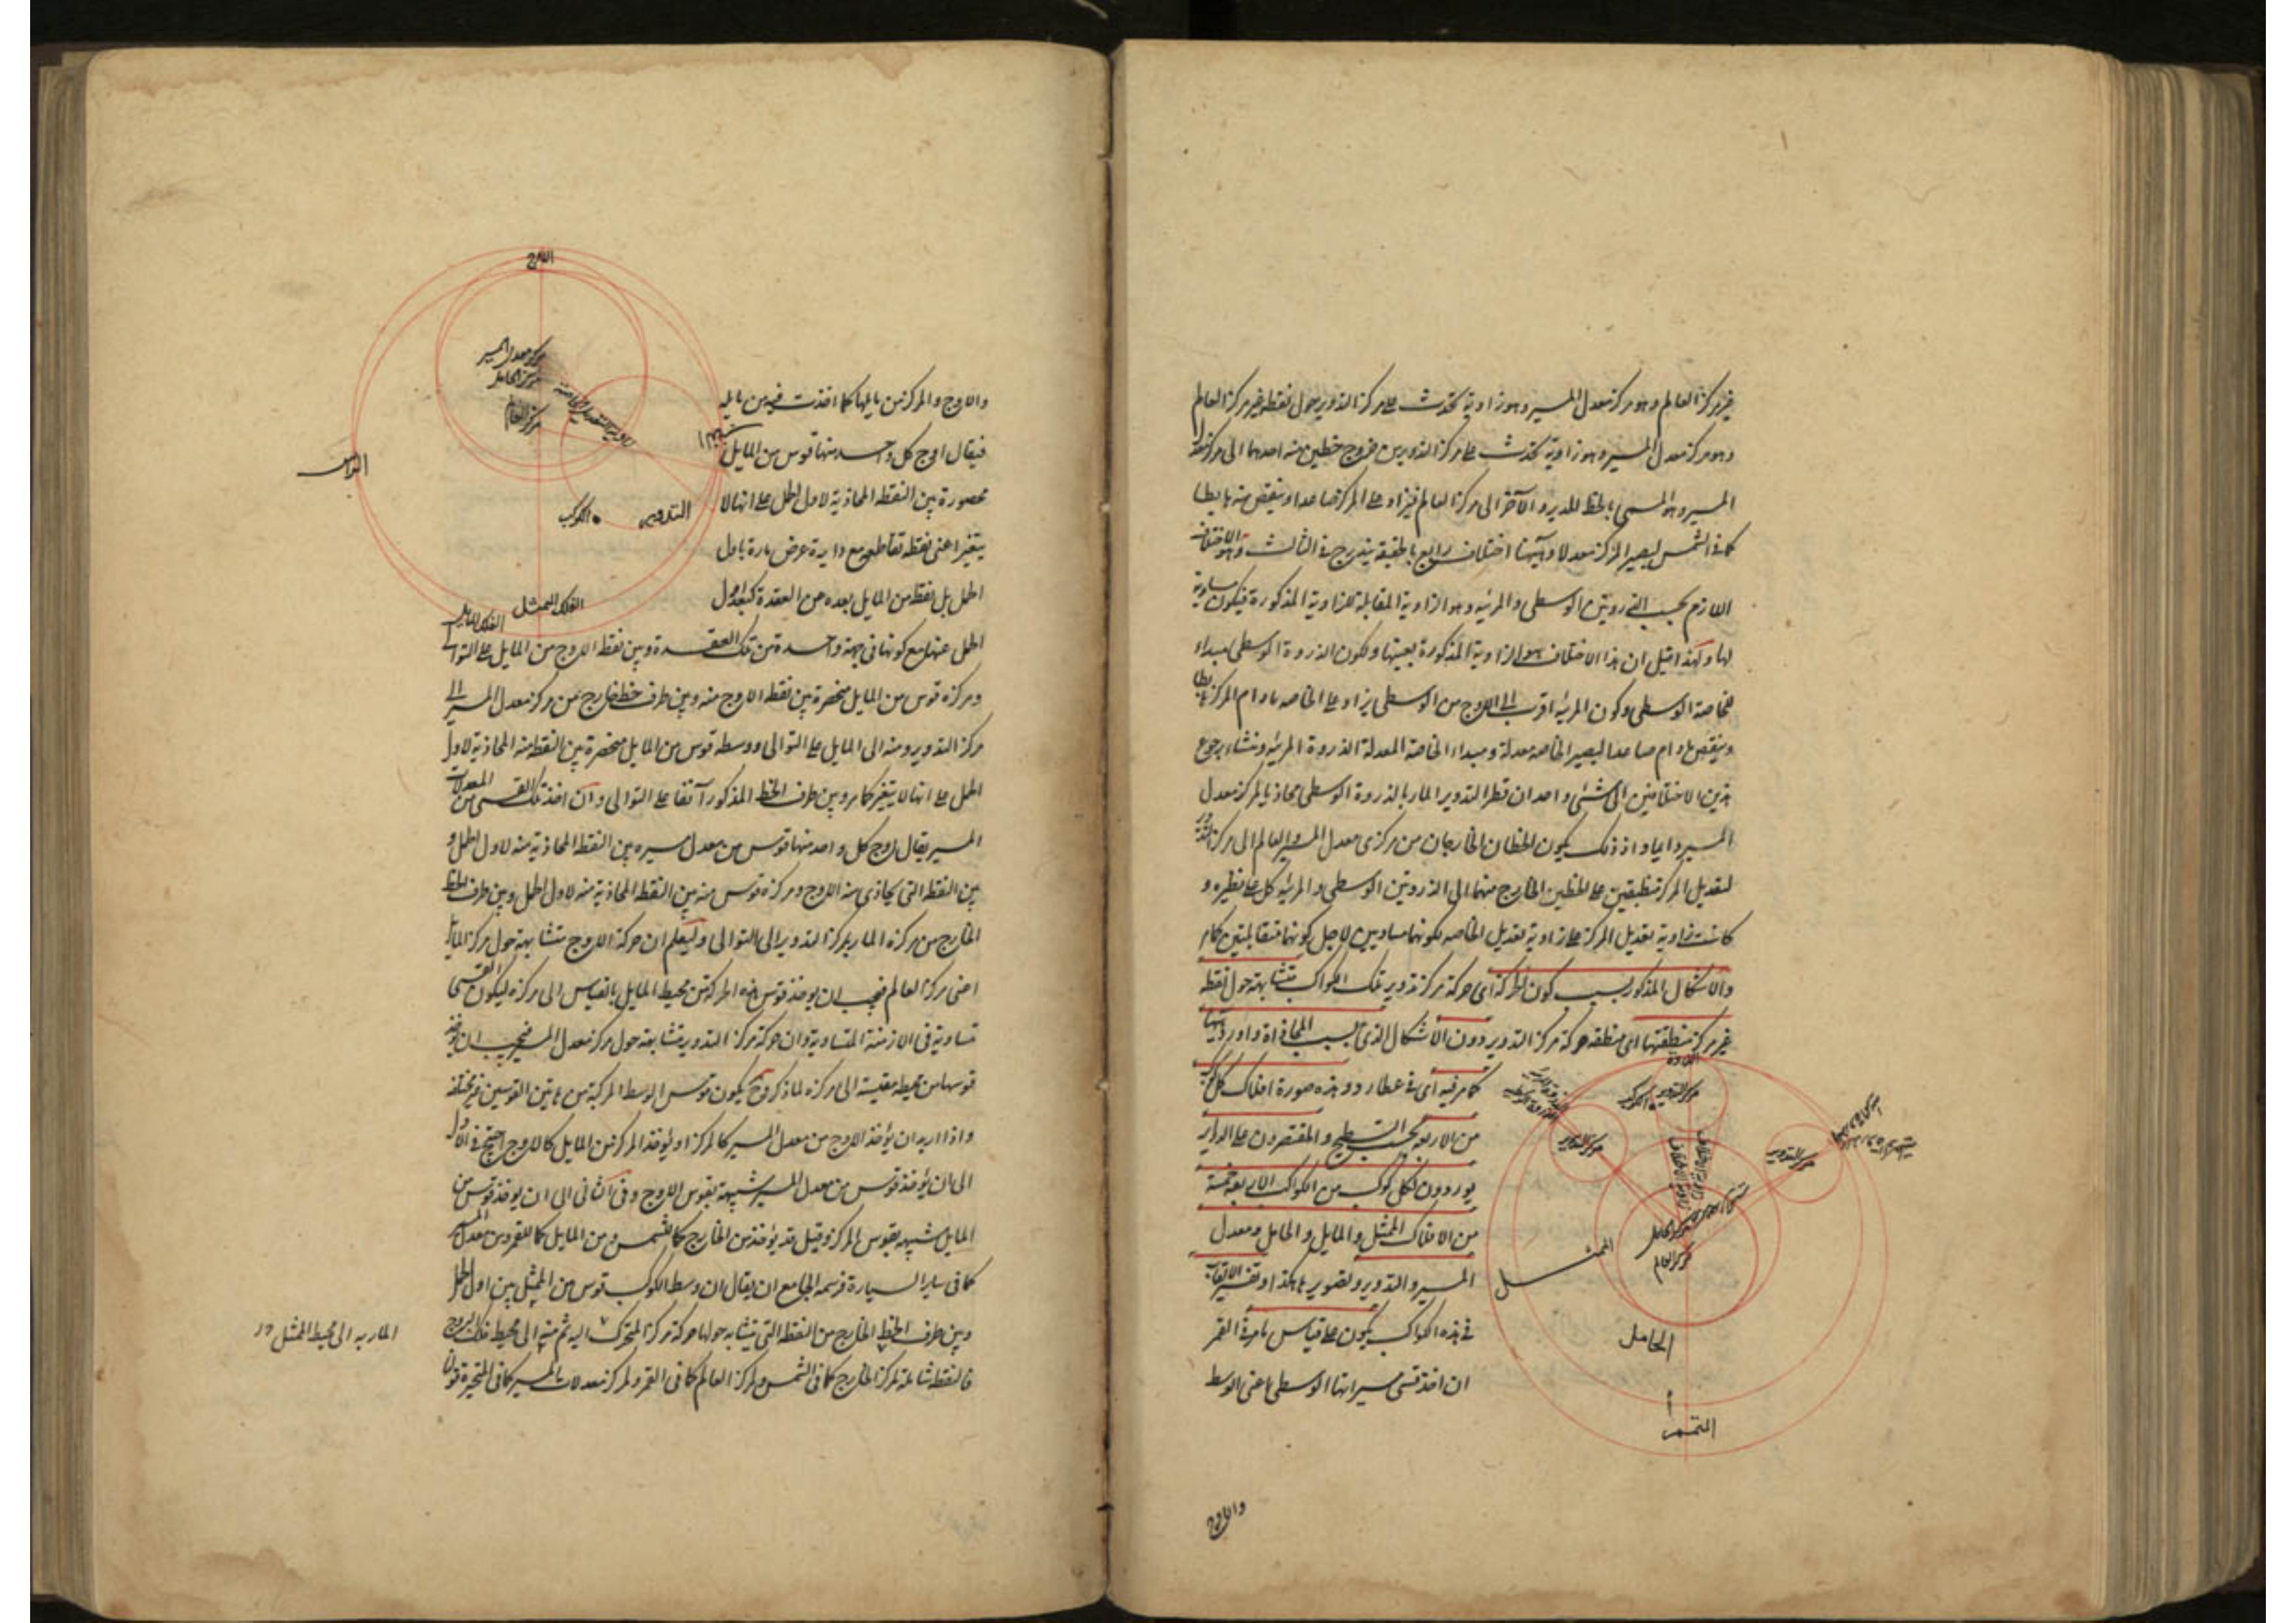 غير مركز العالم وهو مركز معدل المسير وهو زاوية تحدث على مركز التدوير حول نقطة غير مركز العالم
وهو مركز معدل المسير وهو زاوية تحدث على مركز التدوير من خروج خطين منه احدهما الى مركز معدل
المسير وهو المسمى بالخط المدير والآخر الى مركز العالم فيزاد على المركز صاعدا وينقص منه هابطا
كما فى الشمس ليصير المركز معدلا وههنا اختلاف رابع بالحقيقة يندرج فى الثالث وهو الاختلاف
اللازم بحسب الذروتين الوسطى والمرئية وهو الزاوية المقابلة للزاوية المذكورة فيكون مساوية
لها ولهذا قيل ان هذا الاختلاف هو الزاوية المذكورة بعينها ولكون الذروة الوسطى مبداء
للخاصة الوسطى وكون المرئية اقرب الى الاوج من الوسطى يزاد على الخاصة مادام المركز هابطا
وينقص مادام صاعدا ليصير الخاصة معدلة ومبداء الخاصة المعدلة الذروة المرئية ومنشاء رجوع
هذين الاختلافين الى شئ واحد ان قطر التدوير المار بالذروة الوسطى محاذ لمركز معدل
المسير دايما واذ ذلك يكون الخطان الخارجان من مركزى معدل المسير والعالم الى مركز التدوير
لتعديل المركز منطبقين على الخطين الخارج منهما الى الذروتين الوسطى والمرئية كل على نظيره و
كانت زاوية تعديل المركز هى زاوية تعديل الخاصة لكونهما متساويين لاجل كونهما متقابلتين كما مر
والاشكال المذكور بسبب كون الحركة اى حركة مركز تدوير تلك الكواكب متشابهة حول نقطة
غير مركز منطقتها اى منطقة حركة مركز التدوير دون الاشكال الذى بسبب المحاذاة وارد فيها
كما مر فيه اى فى عطارد وهذه صورة افلاك كل
من الاربعة بحسب التسطيح والمقتصرون على الدواير
يوردون لكل كوكب من الكواكب الاربعة خمسة
من الافلاك الممثل والمايل والحامل ومعدل
المسير والتدوير وتصويرها هكذا وتفسير الالقاب
فى هذه الكواكب يكون على قياس ما مر فى القمر
ان اخذ قسى مسيراتها الوسطى اعنى الوسط
الاوج
مركز التدوير
الكوكب
مركز التدوير
مركز التدوير
مركز الحامل
مركز العالم
الممثل
الحامل
المتمم
والاوج
الاوج
مركز معدل المسير
مركز الحامل
مركز العالم
الراس
التدوير
الكوكب
الفلك الممثل
الفلك المايل
والاوج والمركز من مايلها كما اخذت فيه من مايله
فيقال اوج كل واحد منها قوس من المايل
محصورة بين النقطة المحاذية لاول الحمل على انها لا
يتغير اعنى نقطة تقاطعه مع دايرة عرض مارة باول
الحمل بل نقطة من المايل بعده عن العقدة كبعد اول
الحمل عنها مع كونها فى جهة واحدة من تلك العقدة وبين نقطة الاوج من المايل على التوالى
ومركزه قوس من المايل منحصرة بين نقطة الاوج منه وبين طرف خط خارج من مركز معدل المسير الى
مركز التدوير ومنه الى المايل على التوالى ووسطه قوس من المايل منحصرة بين النقطة منه المحاذية لاول
الحمل على انها لا يتغير كما مر وبين طرف الخط المذكور آنفا على التوالى وان اخذ تلك القسى من المعدلات
المسير يقال اوج كل واحد منها قوس من معدل مسيره بين النقطة المحاذية منه لاول الحمل و
بين النقطة التى يحاذى منه الاوج ومركزه قوس منه بين النقطة المحاذية منه لاول الحمل وبين طرف الخط
الخارج من مركزه المار بمركز التدوير الى التوالى وليعلم ان حركة الاوج متشابهة حول مركز المايل
اعنى مركز العالم فيجب ان يوخذ قوس هذه الحركة من محيط المايل بالقياس الى مركزه ليكون القسى
متساوية فى الازمنة المتساوية وان حركة مركز التدوير متشابهة حول مركز معدل المسير فيجب ان يوخذ
قوسها من محيطه مقيسة الى مركزه لما ذكر وح يكون قوس الوسط المركبة من هاتين القوسين غير مختلفة
واذا اريد ان يؤخذ الاوج من معدل المسير كالمركز او يؤخذ المركز من المايل كالاوج احتيج فى الاول
الى ان يؤخذ قوس من معدل المسير شبيهة بقوس الاوج وفى الثانى الى ان يوخذ قوس من
المايل شبيهة بقوس المركز وقيل قد يؤخذ من الخارج كما للشمس ومن المايل كما للقمر ومن معدل المسير
كما فى ساير السيارة فرسمه الجامع ان يقال ان وسط الكوكب قوس من الممثل بين اول الحمل
وبين طرف الخط الخارج من النقطة التى يتشابه حولها حركة مركز المتحرك اليه ثم منه الى محيط فلك البروج
فالنقطة شاملة لمركز الخارج كما فى الشمس ولمركز العالم كما فى القمر ولمركز معدلات المسير كما فى المتحيرة
المار به الى محيط الممثل